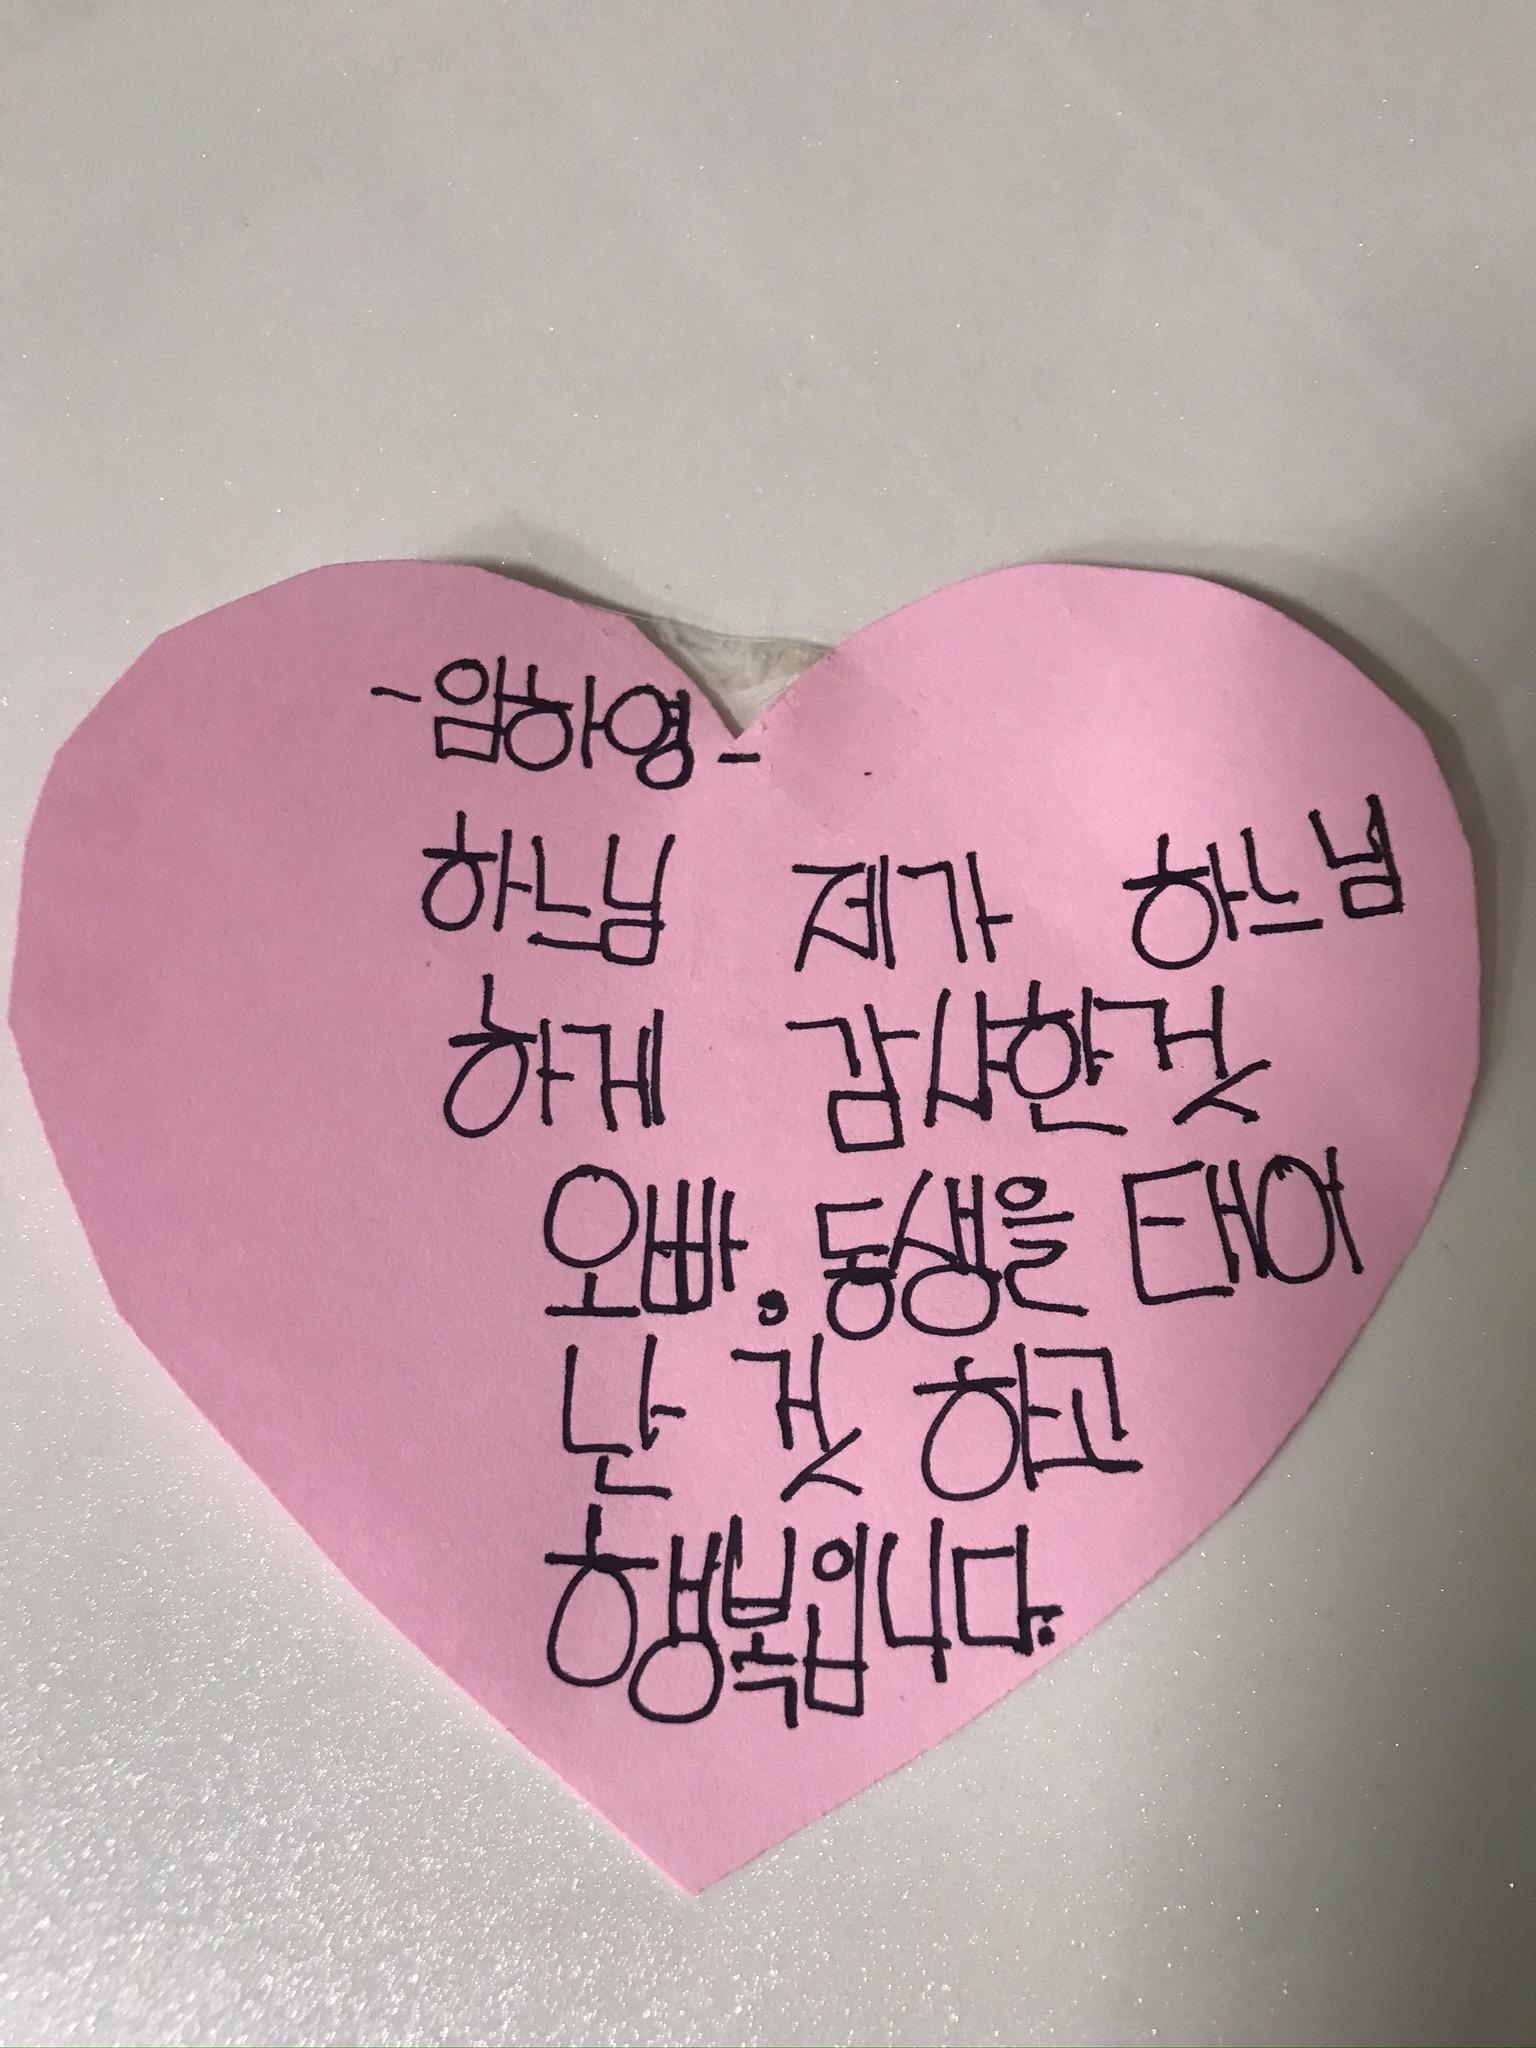 -임하영-
하느님 제가 하느님
하게 감사한것
오빠.동생을 태어
난 것 하고
행복입니다.